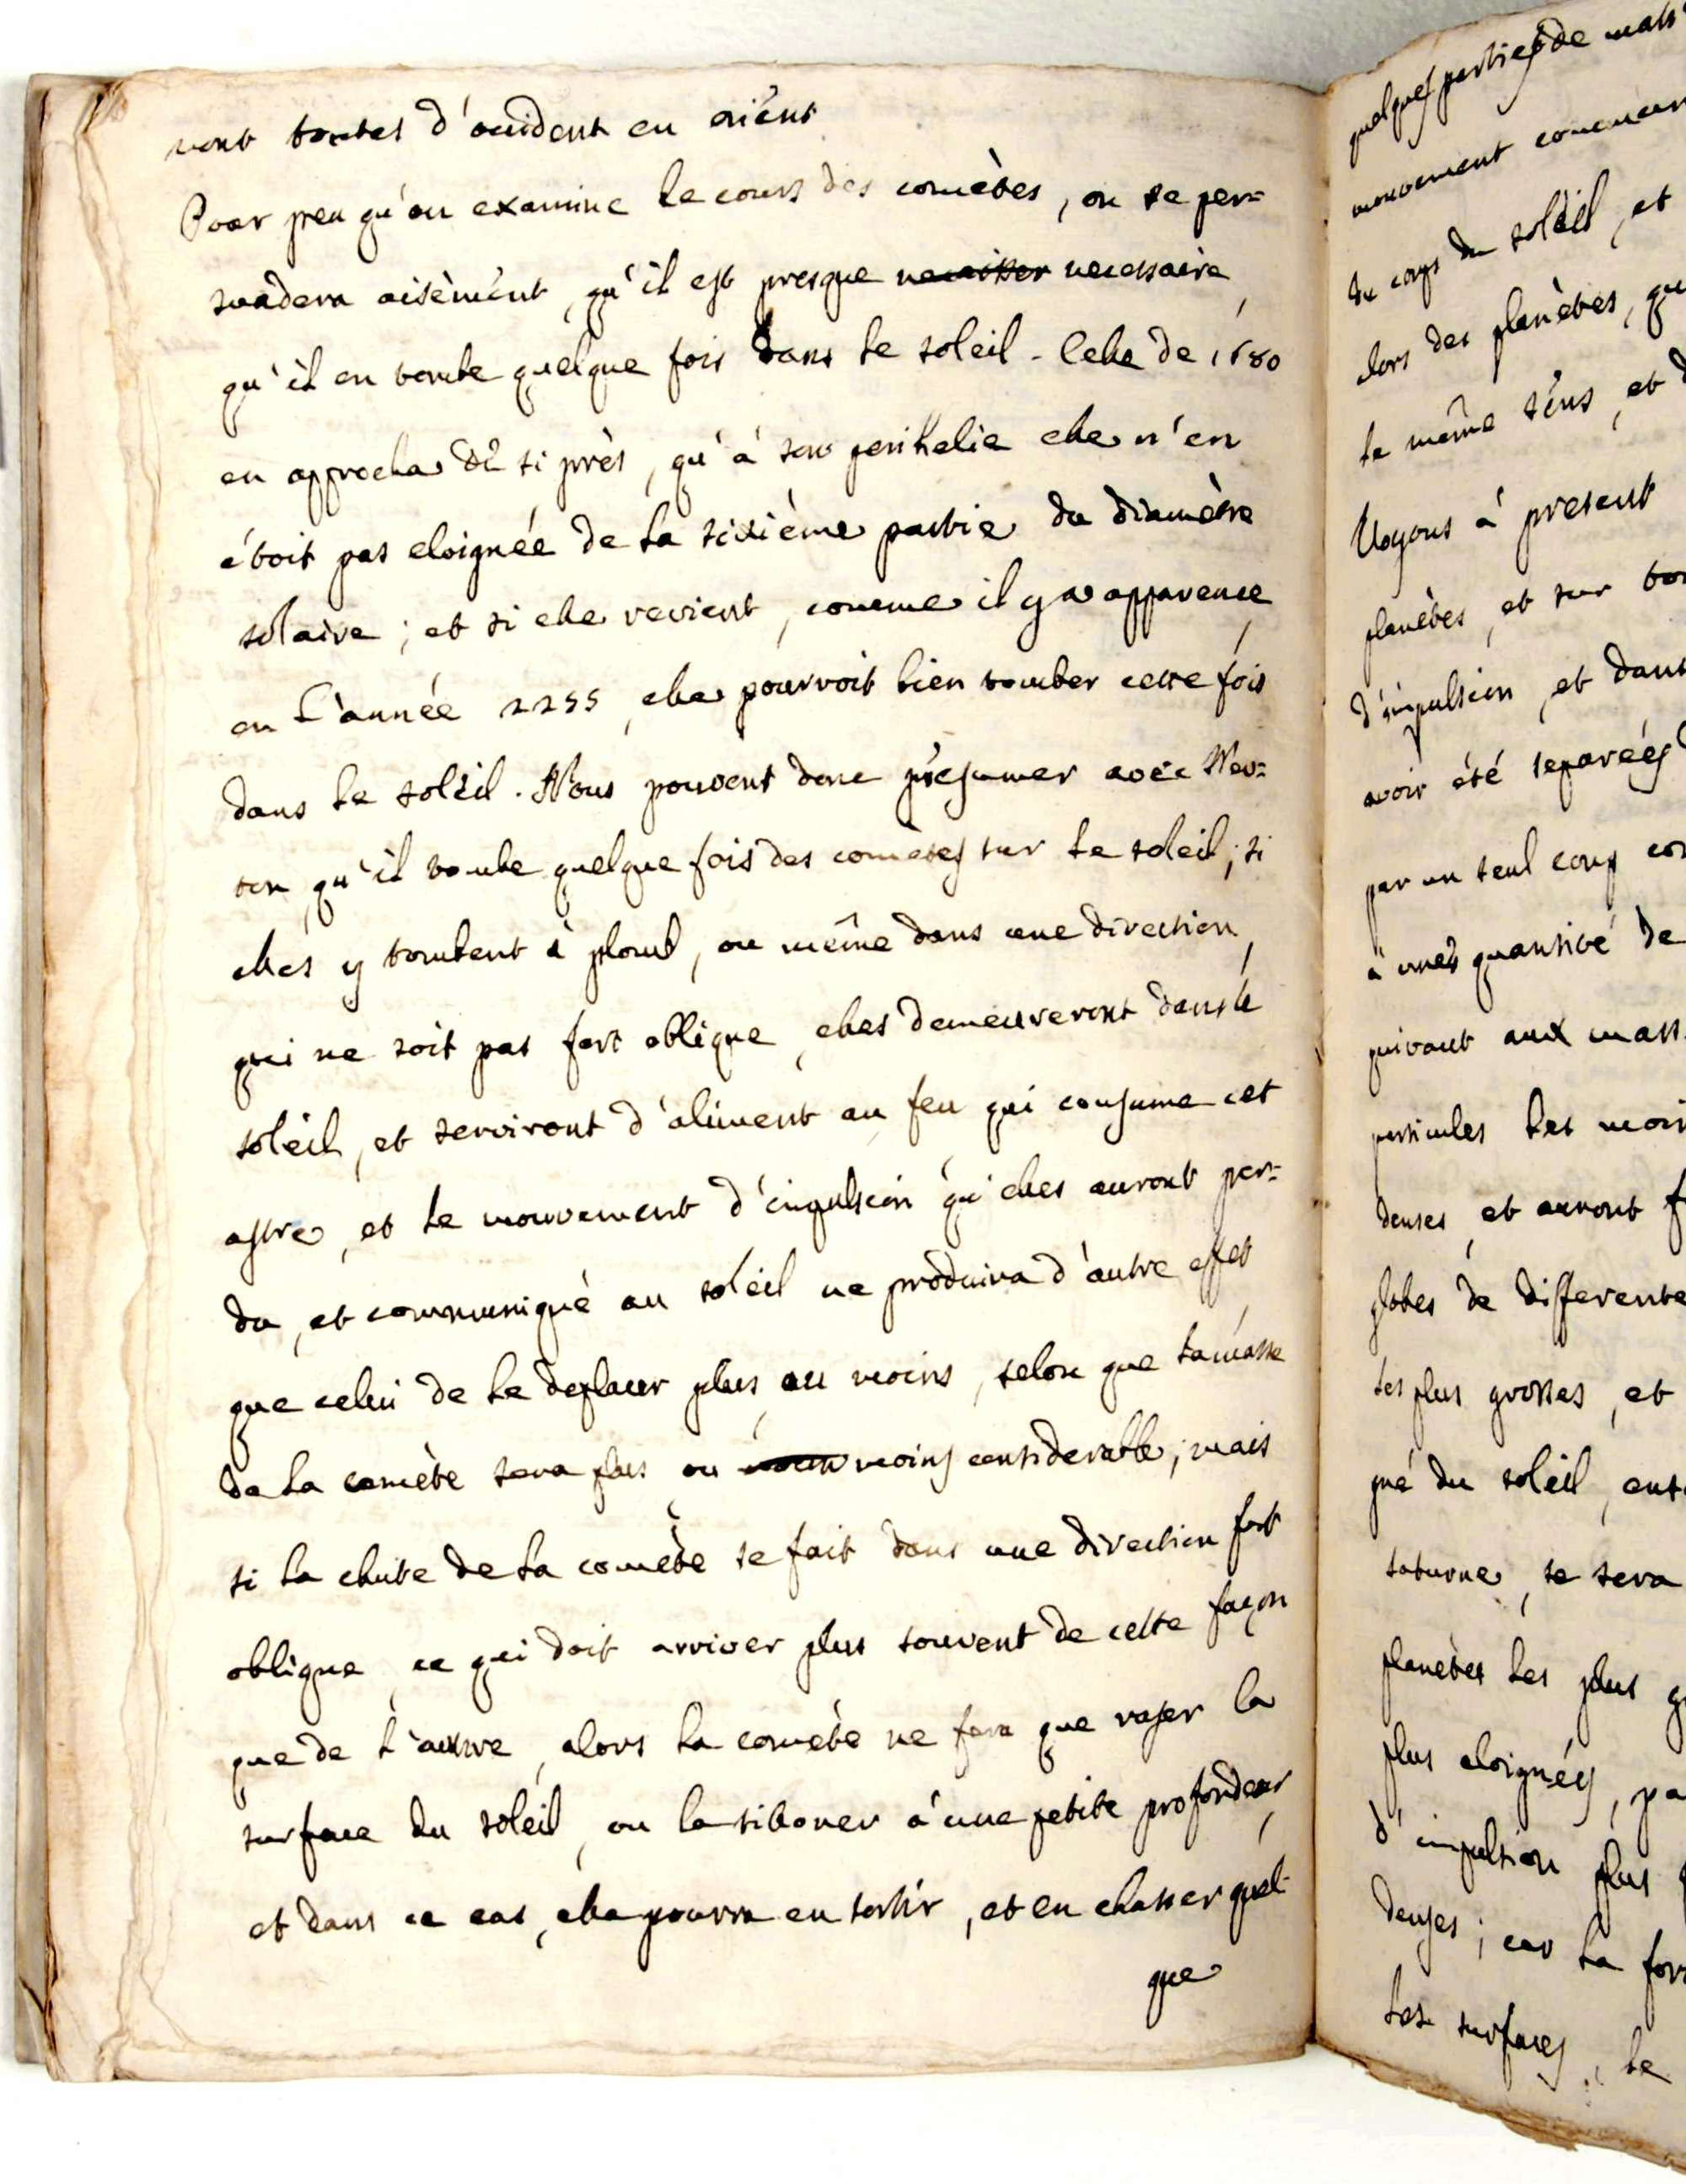 vont toutes d'occident en orient
Pour peu qu'on examine le cours des comètes, on se per=
suadera aisèment, qu'il est presque necessaire,
qu'il en tombe quelque fois dans le soleil. Celle de 1680
en approcha si près, qu'à son perihelie elle n'en
étoit pas eloignée de la sixième partie du diamètre
solaire; et si elle revient, comme il y a apparence,
en l'année 2255, elle pourroit bien tomber cette fois
dans le soleil. Nous pouvont donc présumer avec New=
ton, qu'il tombe quelque fois des comètes sur le soleil; si
elles y tombent à plomb, ou même dans une direction,
qui ne soit pas fort oblique, elles demeureront dans le
soleil, et serviront d'aliment au feu qui consume cet
astre, et le mouvement d'impulsion qu'elles auront per=
du, et communiqué au soleil ne produira d'autre effet
que celui de le deplacer plus, ou moins, selon que la masse
de la comète sera plus ou moins considerable; mais
si la chute de la comète se fait dans une direction fort
oblique, ce qui doit arriver plus souvent de cette façon
que de l'autre, alors la comète ne fera que raser la
surface du soleil, ou la sillonner à une petite profondeur,
et dans ce cas, elle pourra en sortir, et en chasser quel-
que
quelques parties de
mouvement
du corps du soleil, et
alors des planètes,
le même sens, et
Voyons à present
planètes, et sur
d'impulsion, et dans
avoir été separées
par un seul coup
à une quantité de
quivaut aux
particules les
denses, et auront
globes de
les plus grosses, et
gné du soleil,
saturne, se sera
planètes les plus
plus eloignés,
d'impulsion plus
denses; car la
les surfaces, le